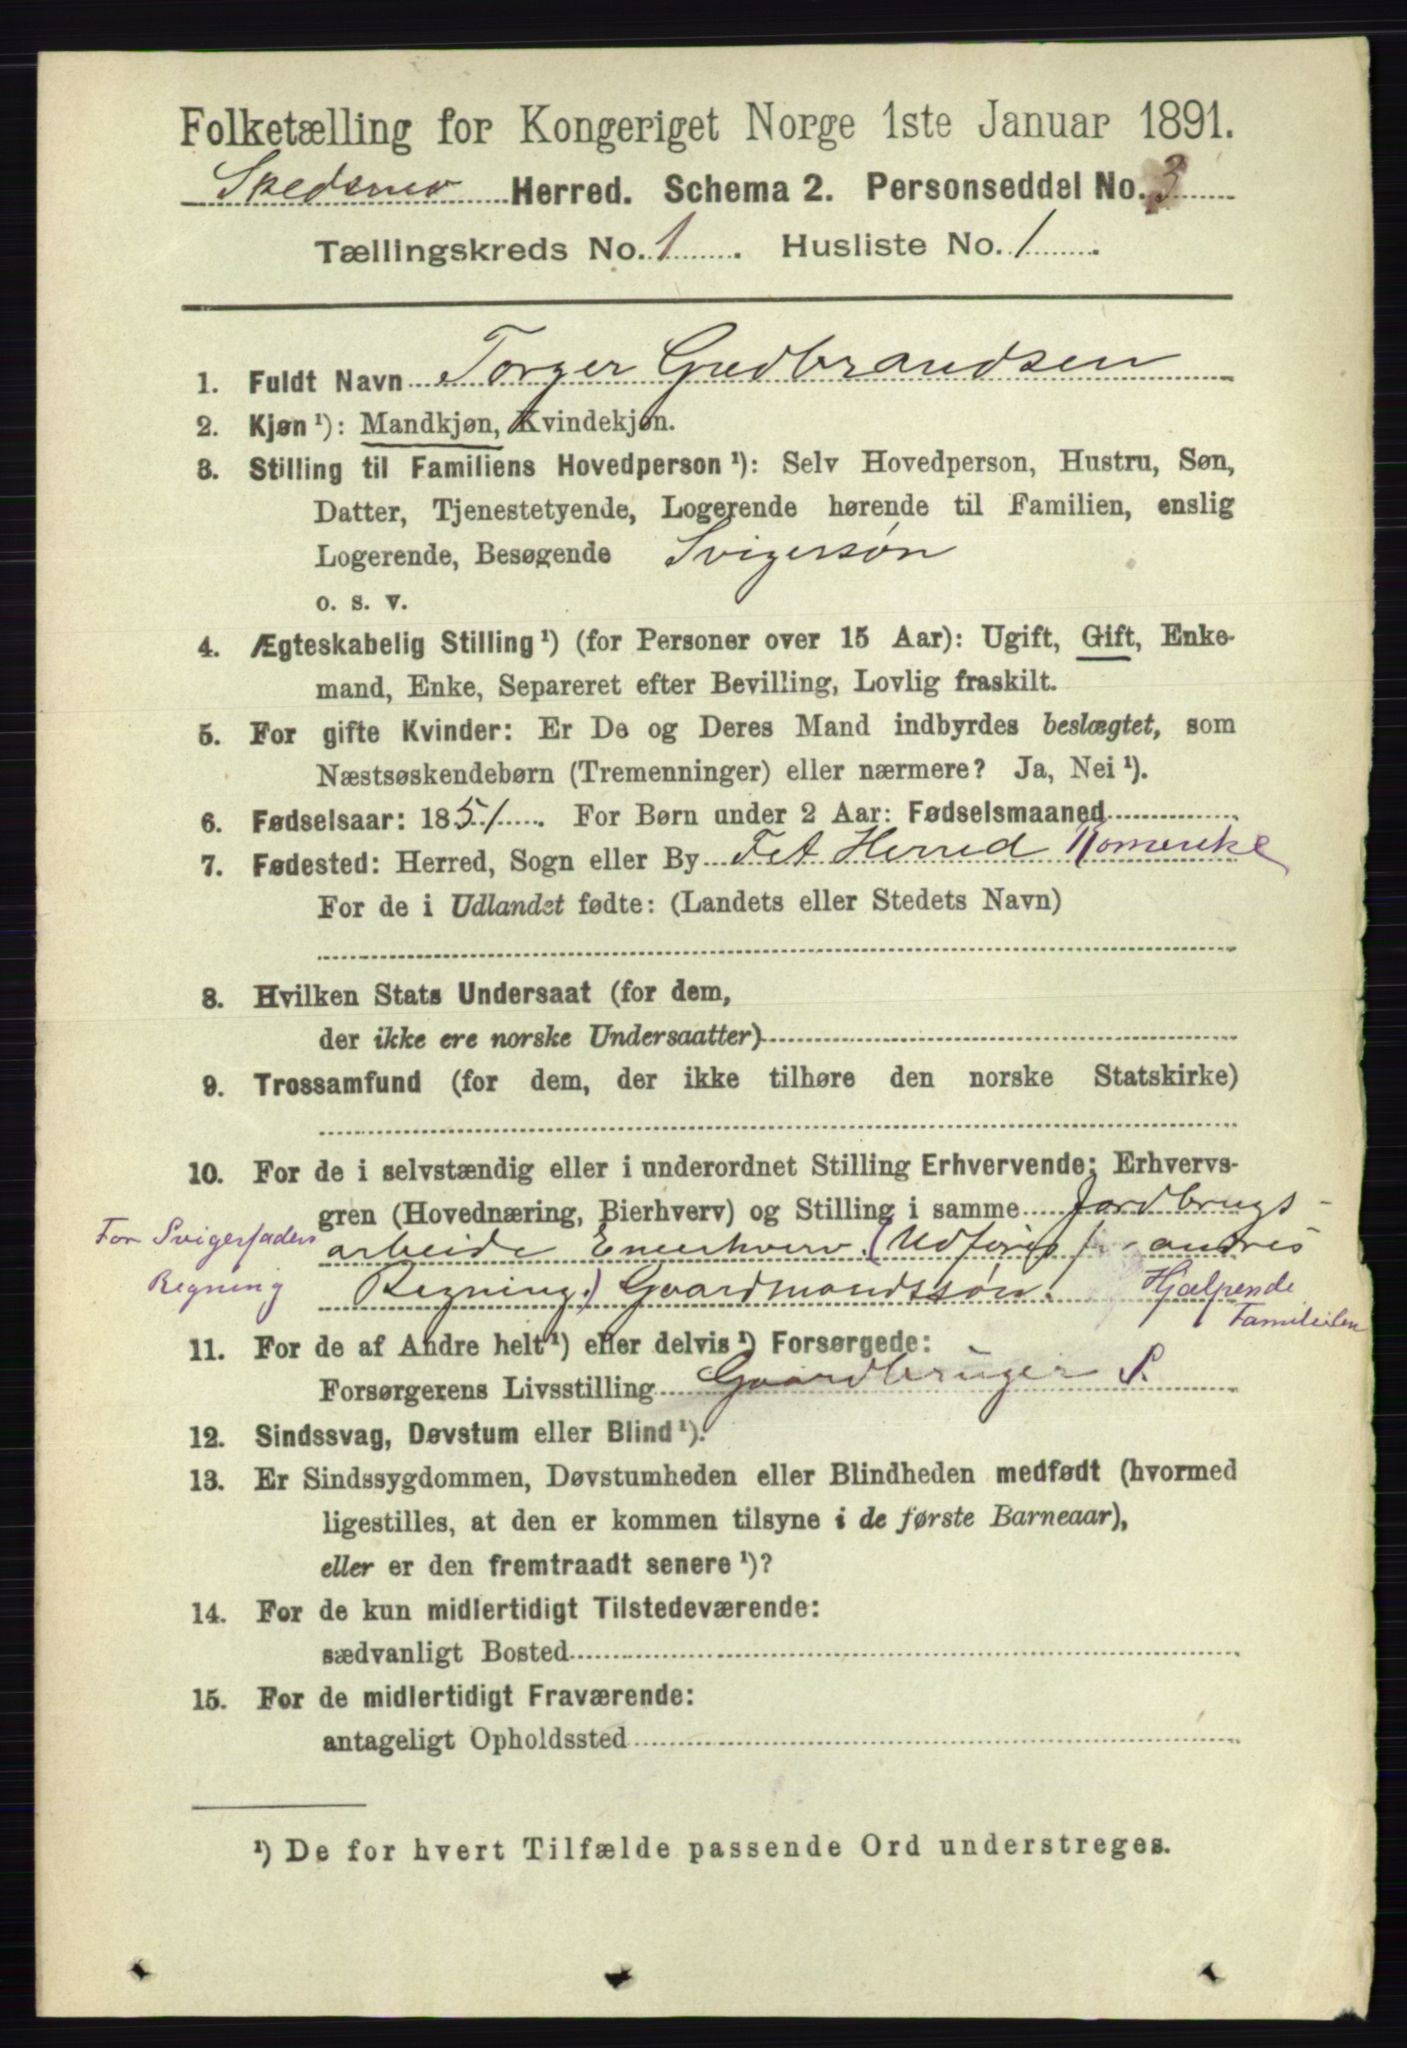 Folketælling for Kongeriget Norge 1ste Januar 1891.
Skedsmo Herred. Schema 2. Personseddel No. 3
Tællingskreds No. 1. Husliste No. 1.
1. Fuldt Navn Torger Gudbrandsen
2. Kjøn¹): Mandkjøn, Kvindekjøn.
3. Stilling til Familiens Hovedperson¹): Selv Hovedperson, Hustru, Søn,
Datter, Tjenestetyende, Logerende hørende til Familien, enslig
Logerende, Besøgende Svigersøn
o. s. v.
4. Ægteskabelig Stilling¹) (for Personer over 15 Aar): Ugift, Gift, Enke-
mand, Enke, Separeret efter Bevilling, Lovlig fraskilt.
5. For gifte Kvinder: Er De og Deres Mand indbyrdes beslægtet, som
Næstsøskendebørn (Tremenninger) eller nærmere? Ja, Nei¹).
6. Fødselsaar: 1851. For Børn under 2 Aar: Fødselsmaaned
7. Fødested: Herred, Sogn eller By Fet Herred Romerike
For de i Udlandet fødte: (Landets eller Stedets Navn)
8. Hvilken Stats Undersaat (for dem,
der ikke ere norske Undersaatter)
9. Trossamfund (for dem, der ikke tilhøre den norske Statskirke)
10. For de i selvstændig eller i underordnet Stilling Erhvervende: Erhvervs-
gren (Hovednæring, Bierhverv) og Stilling i samme Jordbrugs-
For Svigerfaders arbeide Eneerhverv. (Udføres for andres
Regning Regning.) Gaardmandssøn. Hjælpende
Familielem
11. For de af Andre helt¹) eller delvis¹) Forsørgede:
Forsørgerens Livsstilling Gaardbruger S.
12. Sindssvag, Døvstum eller Blind¹).
13. Er Sindssygdommen, Døvstumheden eller Blindheden medfødt (hvormed
ligestilles, at den er kommen tilsyne i de første Barneaar),
eller er den fremtraadt senere¹)?
14. For de kun midlertidigt Tilstedeværende:
sædvanligt Bosted
15. For de midlertidigt Fraværende:
antageligt Opholdssted
¹) De for hvert Tilfælde passende Ord understreges.